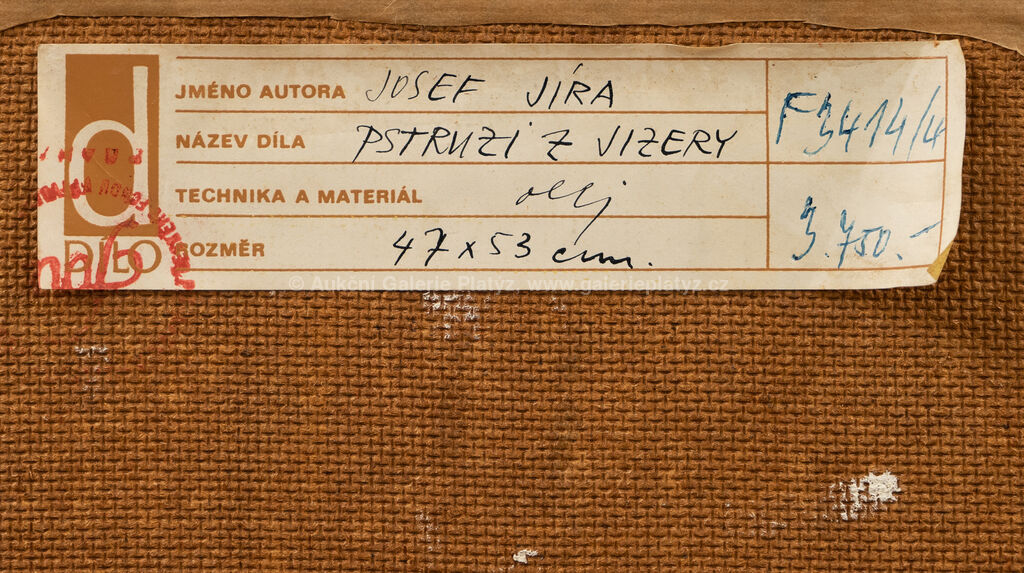 JMÉNO AUTORA JOSEF JÍRA
F 3414/4
NÁZEV DÍLA PSTRUZI Z JIZERY
TECHNIKA A MATERIÁL olej
ROZMĚR 47 x 53 cm.
3.750.-
d
DÍLO
© Aukční Galerie Platýz www.galerieplatyz.cz